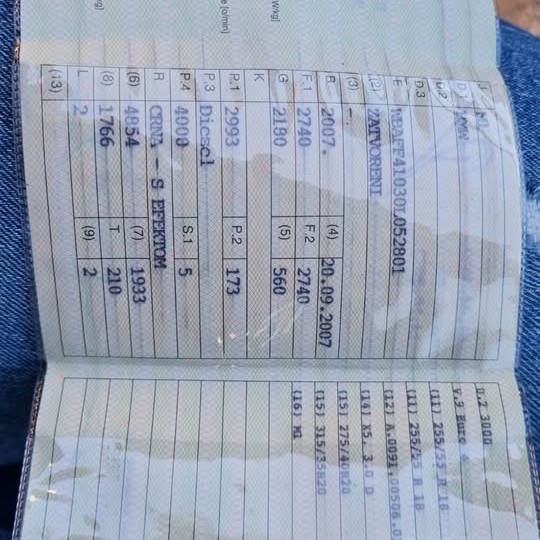 D.3
E WBAFF41030L052801
(2) ZATVORENI
(3) -.
B 2007. (4) 20.09.2007
F.1 2740 F.2 2740
G 2180 (5) 560
K
P.1 2993 P.2 173
P.3 Diesel
P.4 4000 S.1 5
R CRNA - S EFEKTOM
(6) 4854 (7) 1933
(8) 1766 T 210
L 2 (9) 2
(13)
D.2 300D
V.9 Euro 4
(11) 255/55 R 18
(11) 255/55 R 18
(12) A.0091.00506.0
(14) X5, 3.0 D
(15) 275/40R20
(15) 315/35R20
(16) M1